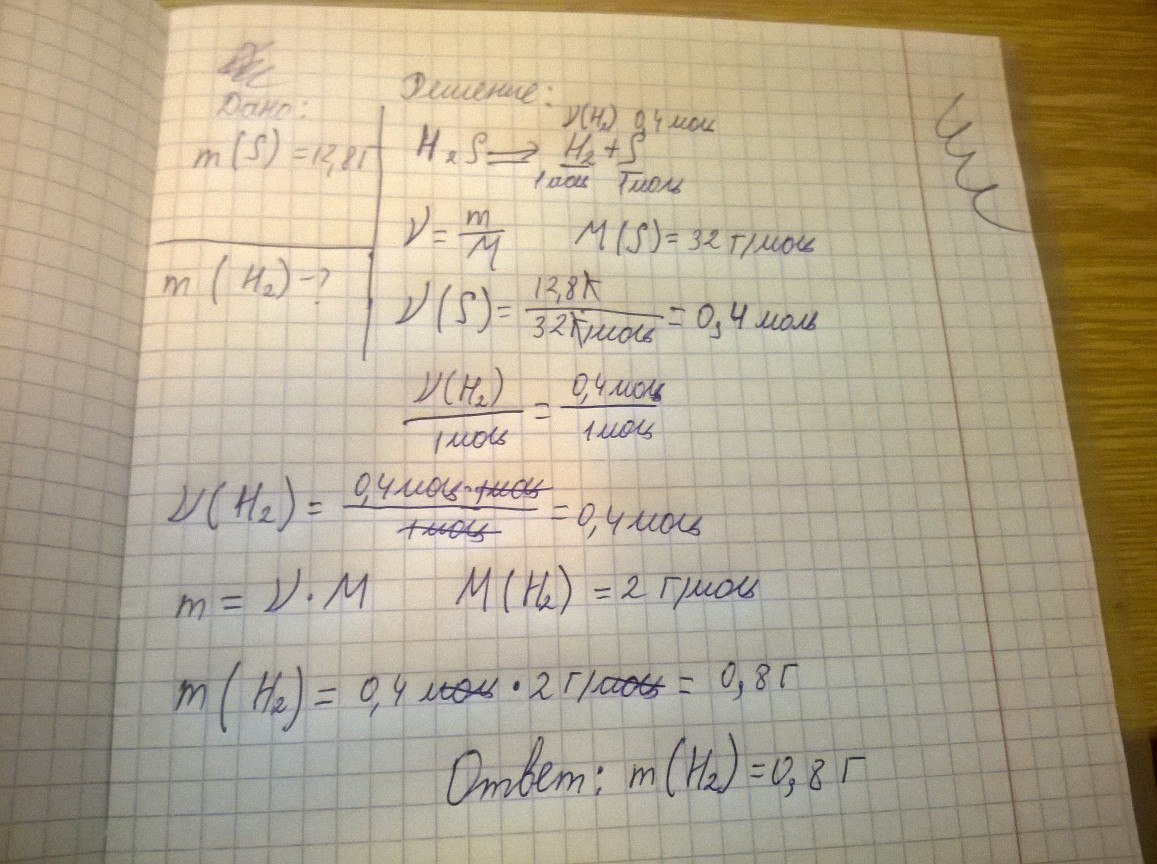 Дано:
m(S) = 12,8 г
m(H₂) - ?
Решение:
ν(H₂) 0,4 моль
H₂S ⇒ H₂ + S
1 моль 1 моль
ν = m/M M(S) = 32 г/моль
ν(S) = 12,8 г / 32 г/моль = 0,4 моль
ν(H₂) / 1 моль = 0,4 моль / 1 моль
ν(H₂) = 0,4 моль · 1 моль / 1 моль = 0,4 моль
m = ν · M M(H₂) = 2 г/моль
m(H₂) = 0,4 моль · 2 г/моль = 0,8 г
Ответ: m(H₂) = 0,8 г